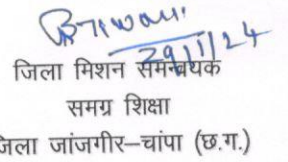 29/1/24
जिला मिशन समन्वयक
समग्र शिक्षा
जिला जांजगीर–चांपा (छ.ग.)